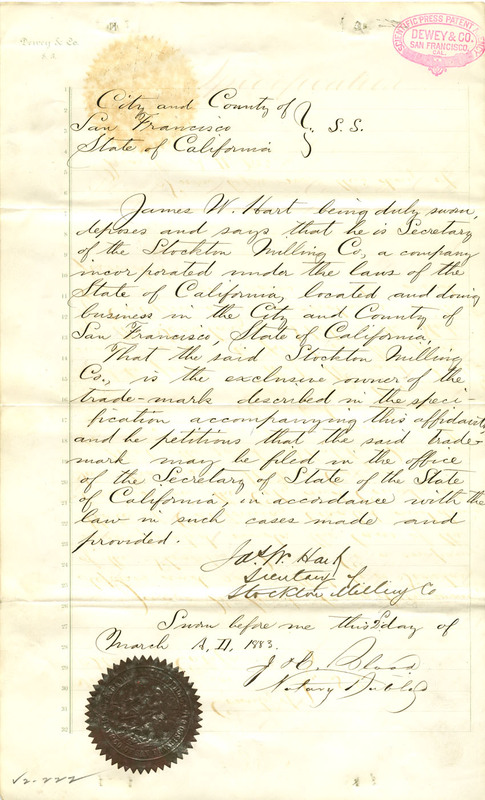 Dewey & Co.
S. F.
SCIENTIFIC PRESS PATENT AGENCY
DEWEY & CO.
SAN FRANCISCO,
CAL.
City and County of
San Francisco } S.S.
State of California
James W. Hart being duly sworn,
deposes and says that he is Secretary
of the Stockton Milling Co, a company
incorporated under the laws of the
State of California, located and doing
business in the City and County of
San Francisco, State of California,
That the said Stockton Milling
Co., is the exclusive owner of the
trade-mark described in the speci-
fication accompanying this affidavit,
and he petitions that the said trade-
mark may be filed in the office
of the Secretary of State of the State
of California, in accordance with the
law in such cases made and
provided.
Jas. W. Hart
Secretary
Stockton Milling Co
Sworn before me this 2d day of
March A.D. 1883.
Notary Public